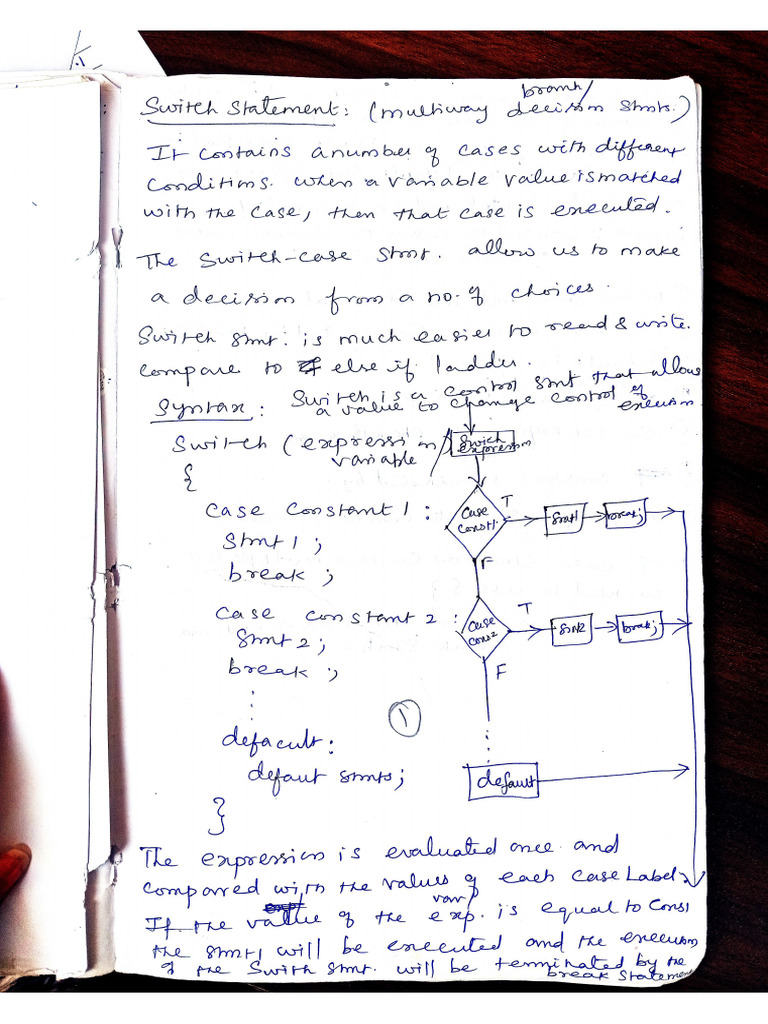 K
branch/
Switch Statement: (multiway decision stmts.)
It contains a number of cases with different
conditions. when a variable value is matched
with the case, then that case is executed.
The Switch-case stmt. allow us to make
a decision from a no. of choices.
Switch stmt. is much easier to read & write.
compare to if else if ladder.
Syntax: Switch is a control stmt that allows
a value to change control of
execusn
Switch (expression)
variable
{
case constant1:
stmt1;
break;
case constant2:
stmt2;
break;
defacult:
defaut stmts;
}
Swich
expression
case
const1.
T
stmt1
break;
F
case
con2
T
stmt2
break;
F
default
1
The expression is evaluated once and
compared with the values of each case Label.
var/
If the value of the exp. is equal to Cons1
the stmt1 will be executed and the execusn
of the Swith stmt. will be terminated by the
break statement